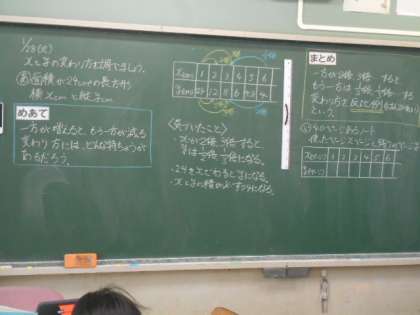 1/28(火)
xとyの変わり方を調べましょう。
面積が24cm²の長方形
横xcmと縦ycm
めあて
一方が増えると、もう一方が減る
変わり方には、どんな特ちょうが
あるだろう。
xcm 1 2 3 4 5 6
ycm 24 12 8 6 4.8 4
<気づいたこと>
・xが2倍、3倍…すると
yは1/2倍、1/3倍になる。
・24をxでわるとyになる。
・xとyの積が24になる。
まとめ
一方が2倍、3倍…すると
もう一方は1/2倍、1/3倍…する
変わり方を反比例
という。
x 1 2 3 4 5 6
y